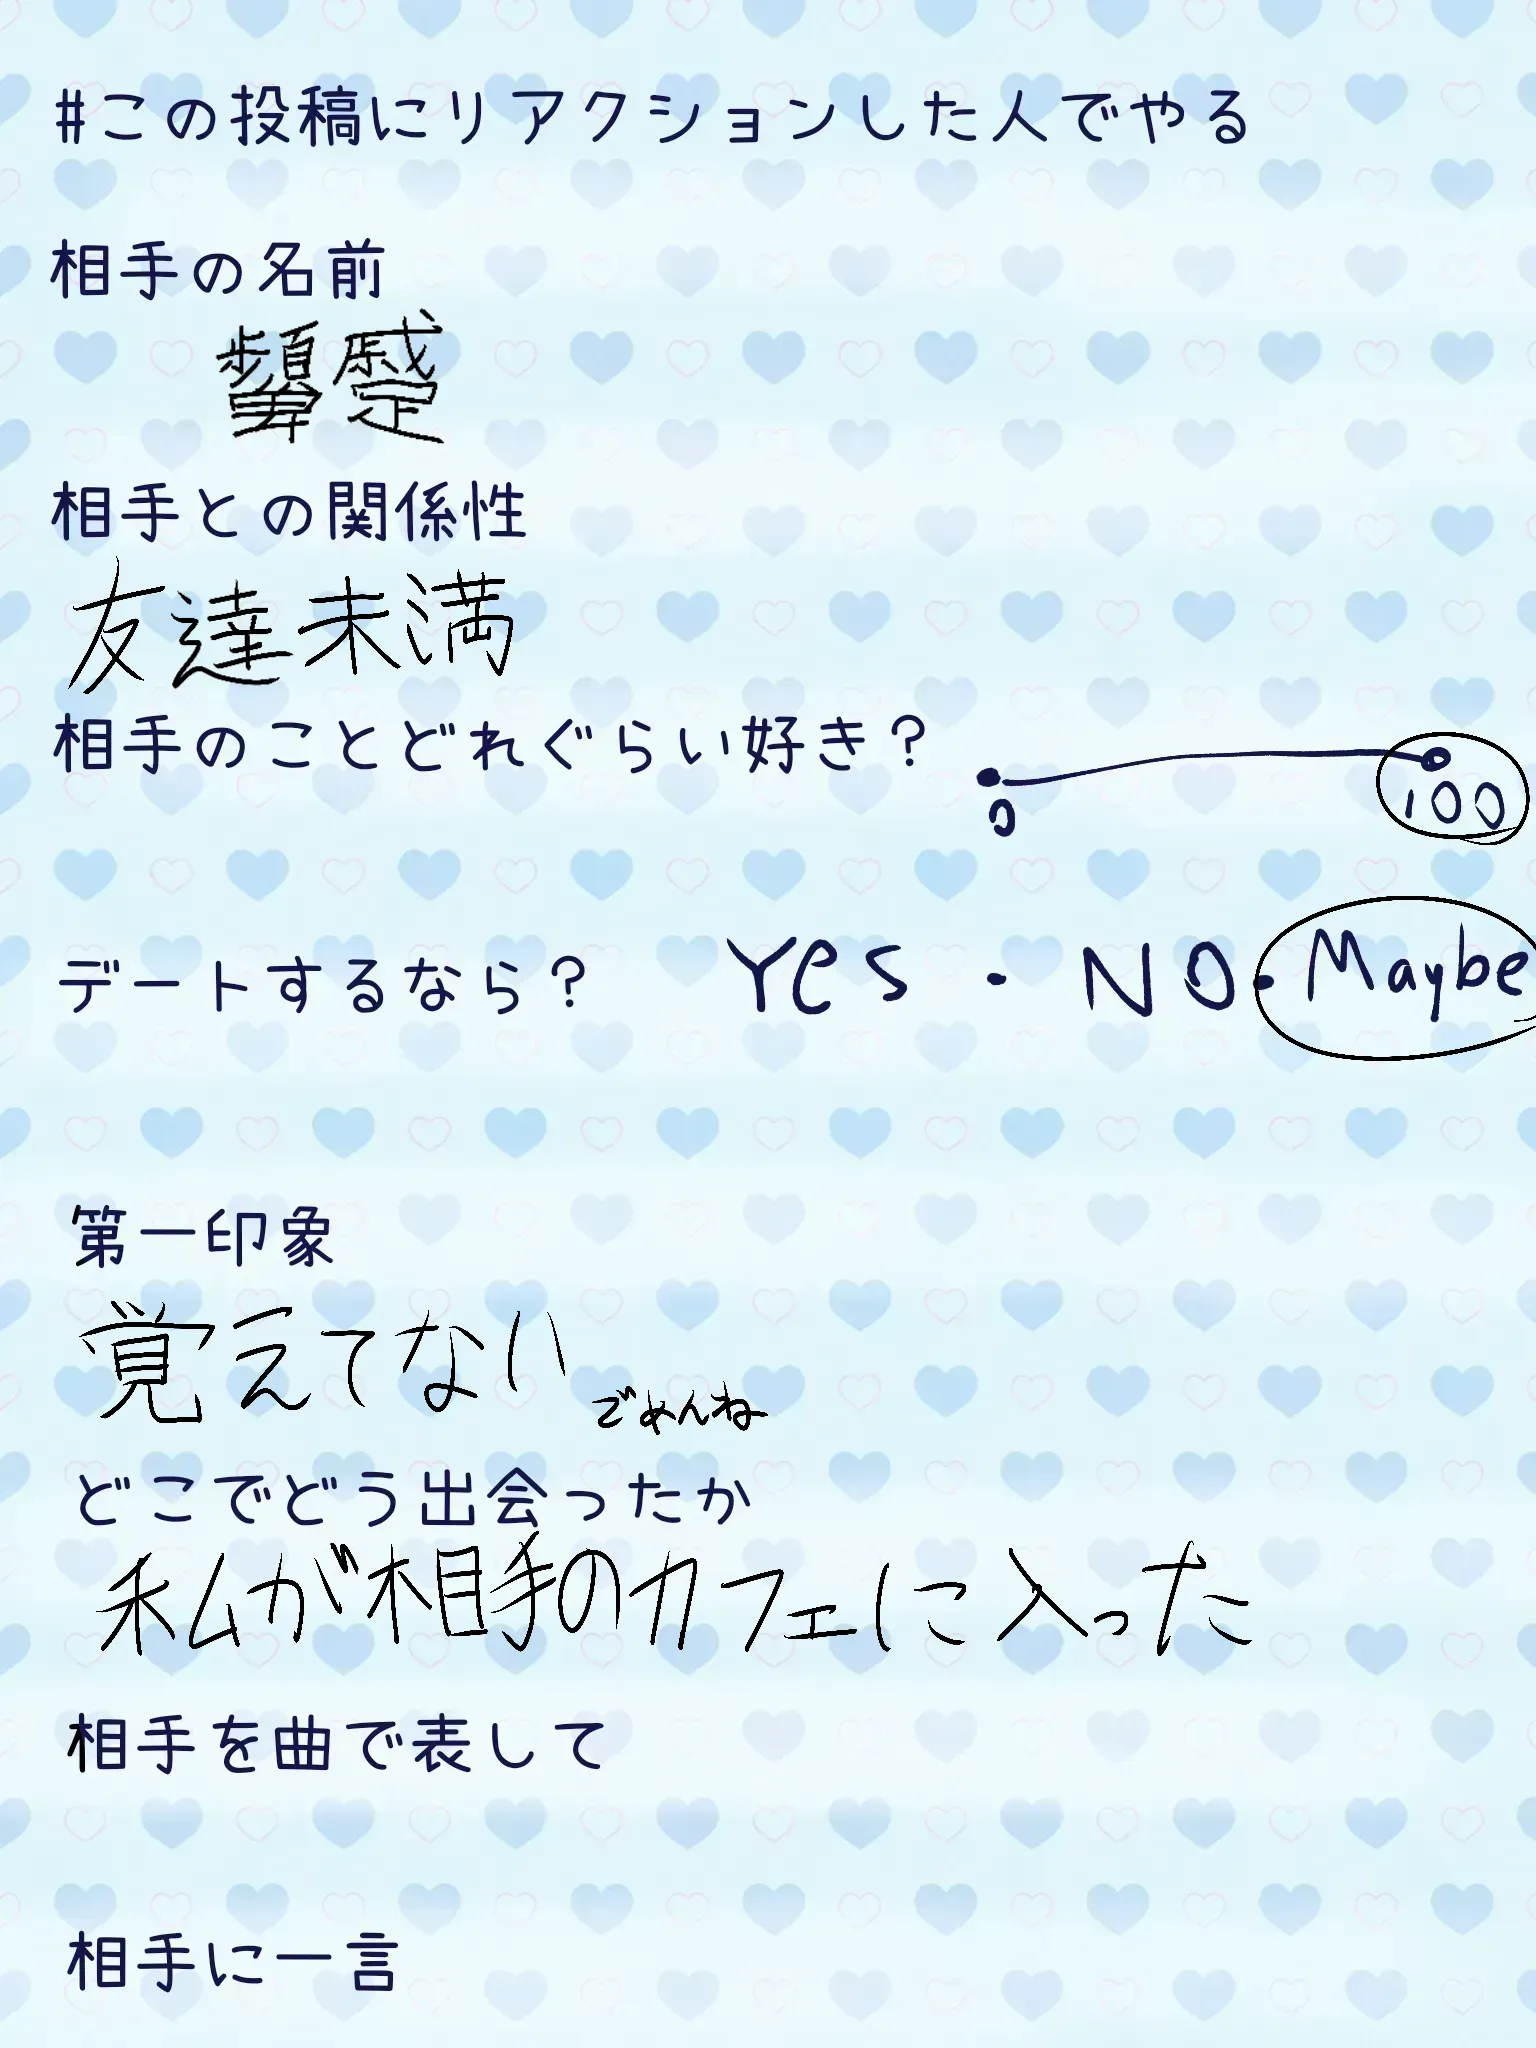 #この投稿にリアクションした人でやる
相手の名前
顰蹙
相手との関係性
友達未満
相手のことどれぐらい好き?
0 100
デートするなら? Yes・NO・Maybe
第一印象
覚えてない ごめんね
どこでどう出会ったか
私が相手のカフェに入った
相手を曲で表して
相手に一言